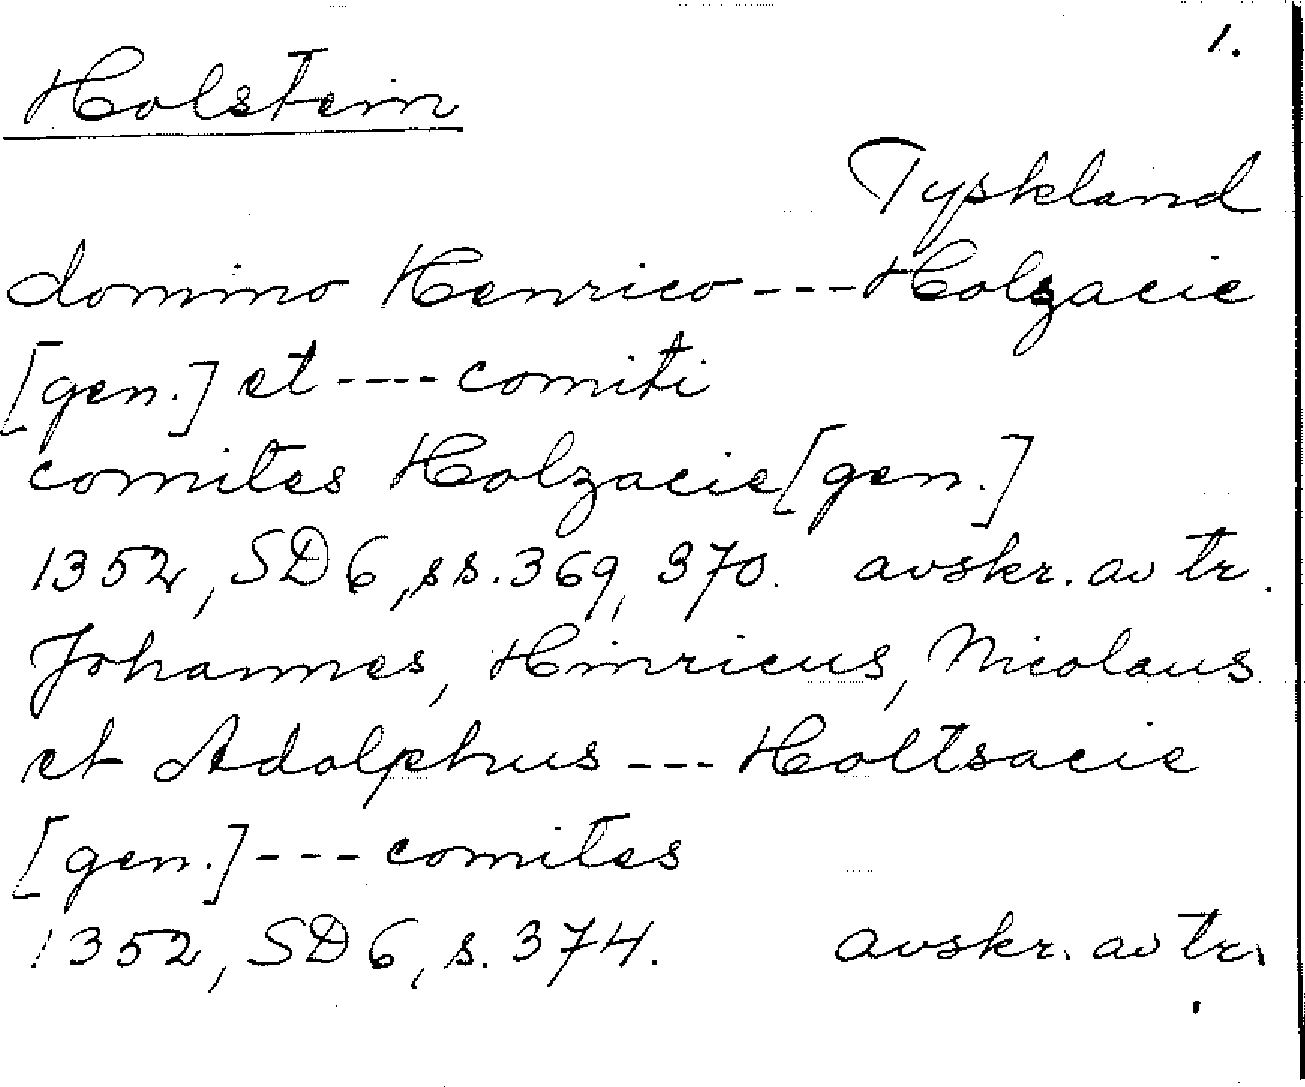 1.
Holstein
Tyskland
domino Henrico --- Holzacie
[gen.] et ---- comiti
comites Holzacie [gen.]
1352, SD 6, ss. 369, 370. avskr. av tr.
Johannes, Hinricus, Nicolaus
et Adolphus --- Holtsacie
[gen.] --- comites
1352, SD 6, s. 374. avskr. av tr.